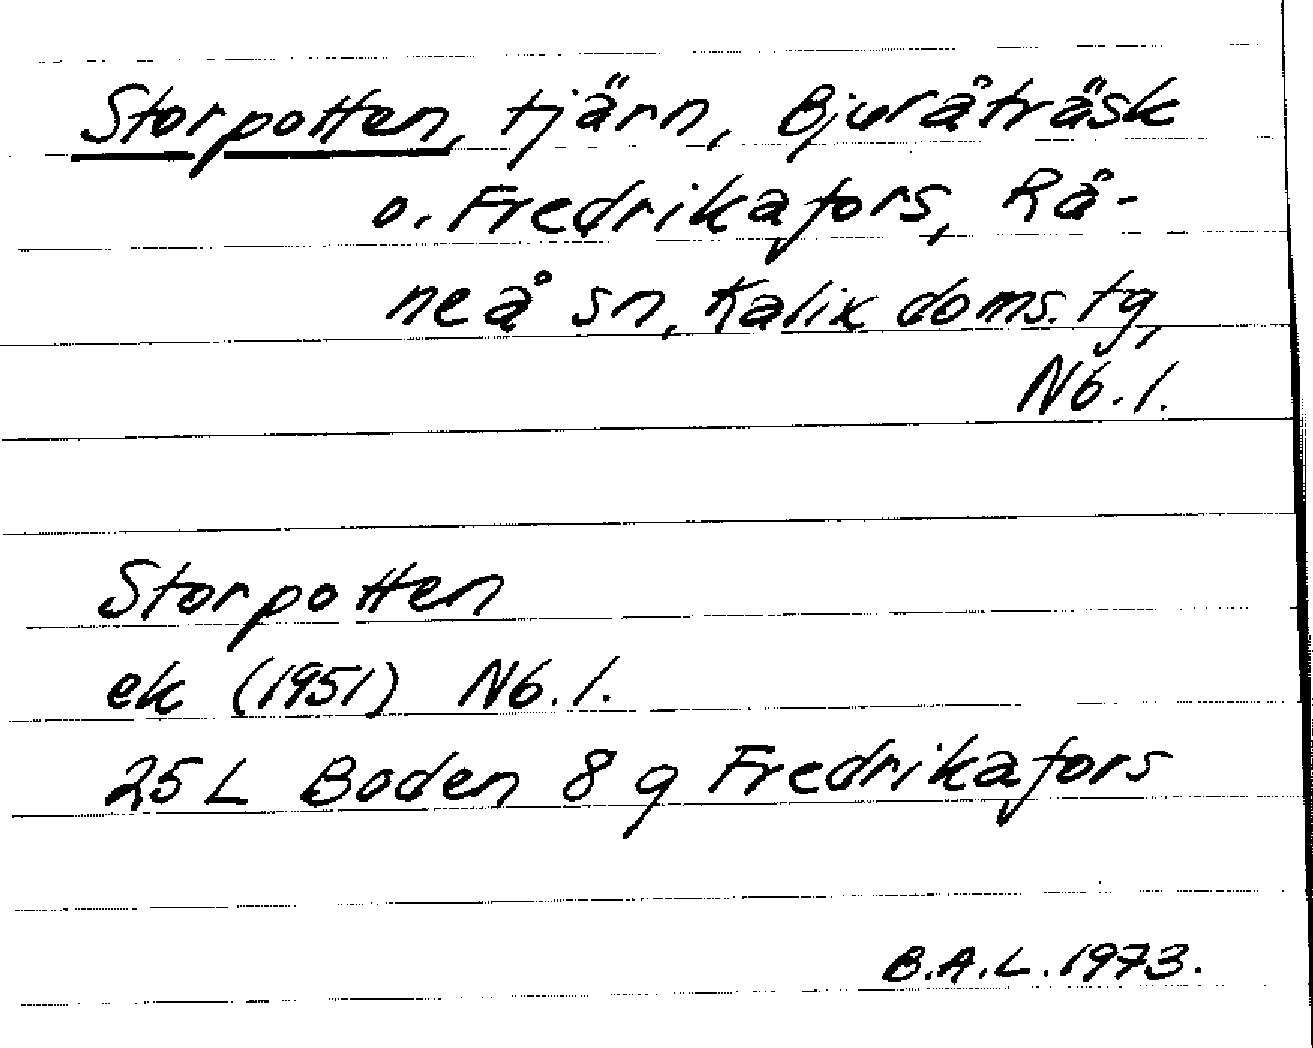 Storpotten, tjärn, Bjuråträsk
o. Fredrikafors, Rå-
neå sn, Kalix doms. tg,
Nb. l.
Storpotten
ek (1951) Nb. l.
25 L Boden 8 g Fredrikafors
B.A.L. 1973.